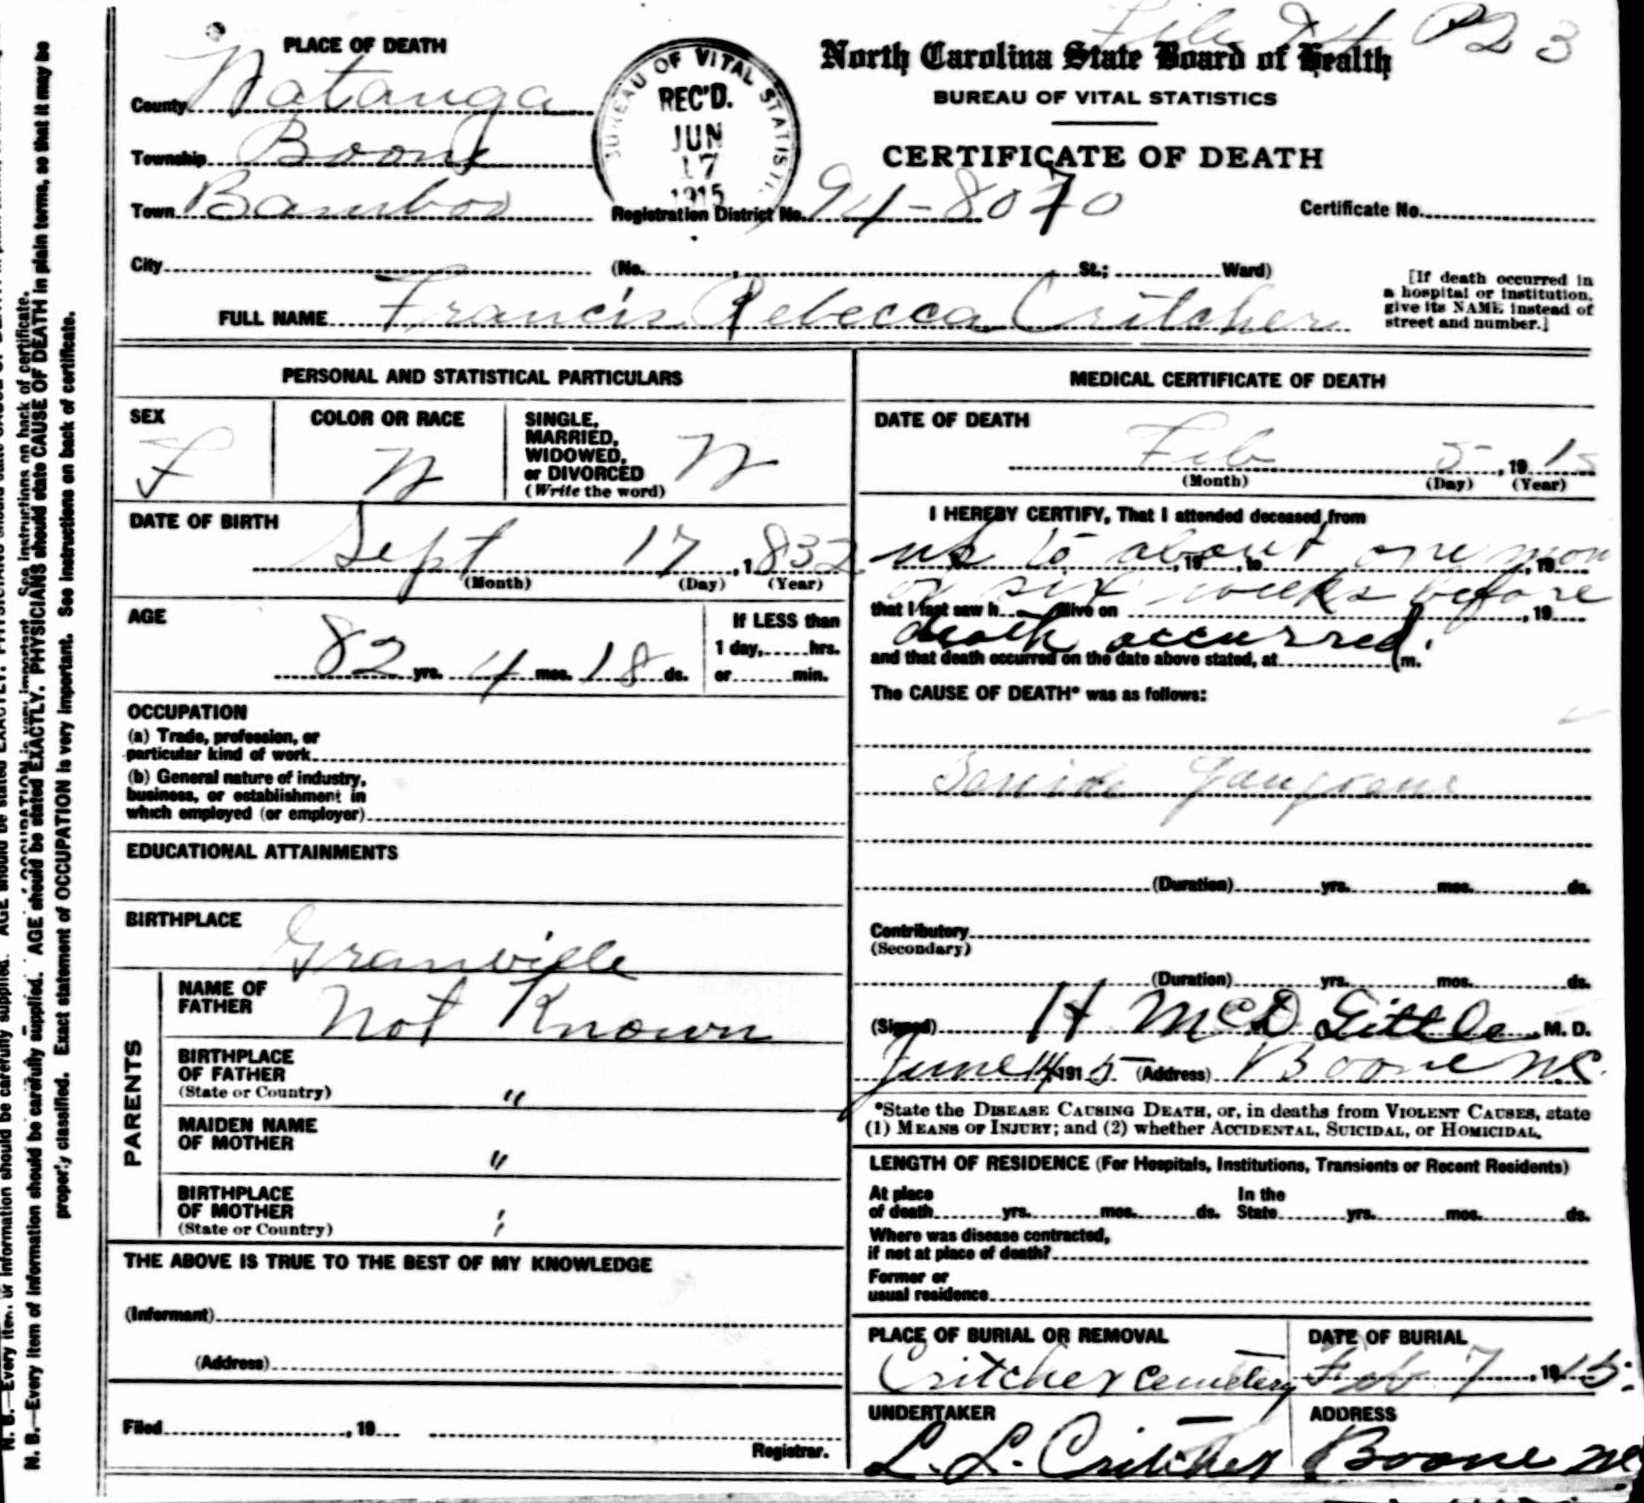 File 94 P23
PLACE OF DEATH
County Watauga
Township Boone
Town Bamboo
City
BUREAU OF VITAL STATISTICS
REC'D.
JUN
17
1915
North Carolina State Board of Health
BUREAU OF VITAL STATISTICS
CERTIFICATE OF DEATH
Registration District No. 94-8070
Certificate No.
(No. , St.; Ward)
[If death occurred in
a hospital or institution,
give its NAME instead of
street and number.]
FULL NAME Francis Rebecca Critcher
PERSONAL AND STATISTICAL PARTICULARS
SEX
F
COLOR OR RACE
W
SINGLE,
MARRIED,
WIDOWED,
or DIVORCED
(Write the word)
W
DATE OF BIRTH
Sept 17, 1832
(Month) (Day) (Year)
AGE
82 yrs. 4 mos. 18 ds.
If LESS than
1 day, hrs.
or min.
OCCUPATION
(a) Trade, profession, or
particular kind of work
(b) General nature of industry,
business, or establishment in
which employed (or employer)
EDUCATIONAL ATTAINMENTS
BIRTHPLACE
Granville
PARENTS
NAME OF
FATHER
Not Known
BIRTHPLACE
OF FATHER
(State or Country)
"
MAIDEN NAME
OF MOTHER
"
BIRTHPLACE
OF MOTHER
(State or Country)
"
THE ABOVE IS TRUE TO THE BEST OF MY KNOWLEDGE
(Informant)
(Address)
Filed , 19
Registrar.
MEDICAL CERTIFICATE OF DEATH
DATE OF DEATH
Feb 5, 1915
(Month) (Day) (Year)
I HEREBY CERTIFY, That I attended deceased from
up to about one mon
, 19 , to , 19
or six weeks before
that I last saw h alive on , 19
death occurred.
and that death occurred on the date above stated, at m.
The CAUSE OF DEATH* was as follows:
Senile Gangrene
(Duration) yrs. mos. ds.
Contributory
(Secondary)
(Duration) yrs. mos. ds.
(Signed) H McD Little, M. D.
June 14, 1915 (Address) Boone NC.
*State the DISEASE CAUSING DEATH, or, in deaths from VIOLENT CAUSES, state
(1) MEANS OF INJURY; and (2) whether ACCIDENTAL, SUICIDAL, or HOMICIDAL.
LENGTH OF RESIDENCE (For Hospitals, Institutions, Transients or Recent Residents)
At place
of death yrs. mos. ds.
In the
State yrs. mos. ds.
Where was disease contracted,
if not at place of death?
Former or
usual residence
PLACE OF BURIAL OR REMOVAL
Critcher cemetery
DATE OF BURIAL
Feb 7, 1915.
UNDERTAKER
L. L. Critcher
ADDRESS
Boone NC
N. B.—Every item of information should be carefully supplied. AGE should be stated EXACTLY. PHYSICIANS should state CAUSE OF DEATH in plain terms, so that it may be
properly classified. Exact statement of OCCUPATION is very important. See instructions on back of certificate.